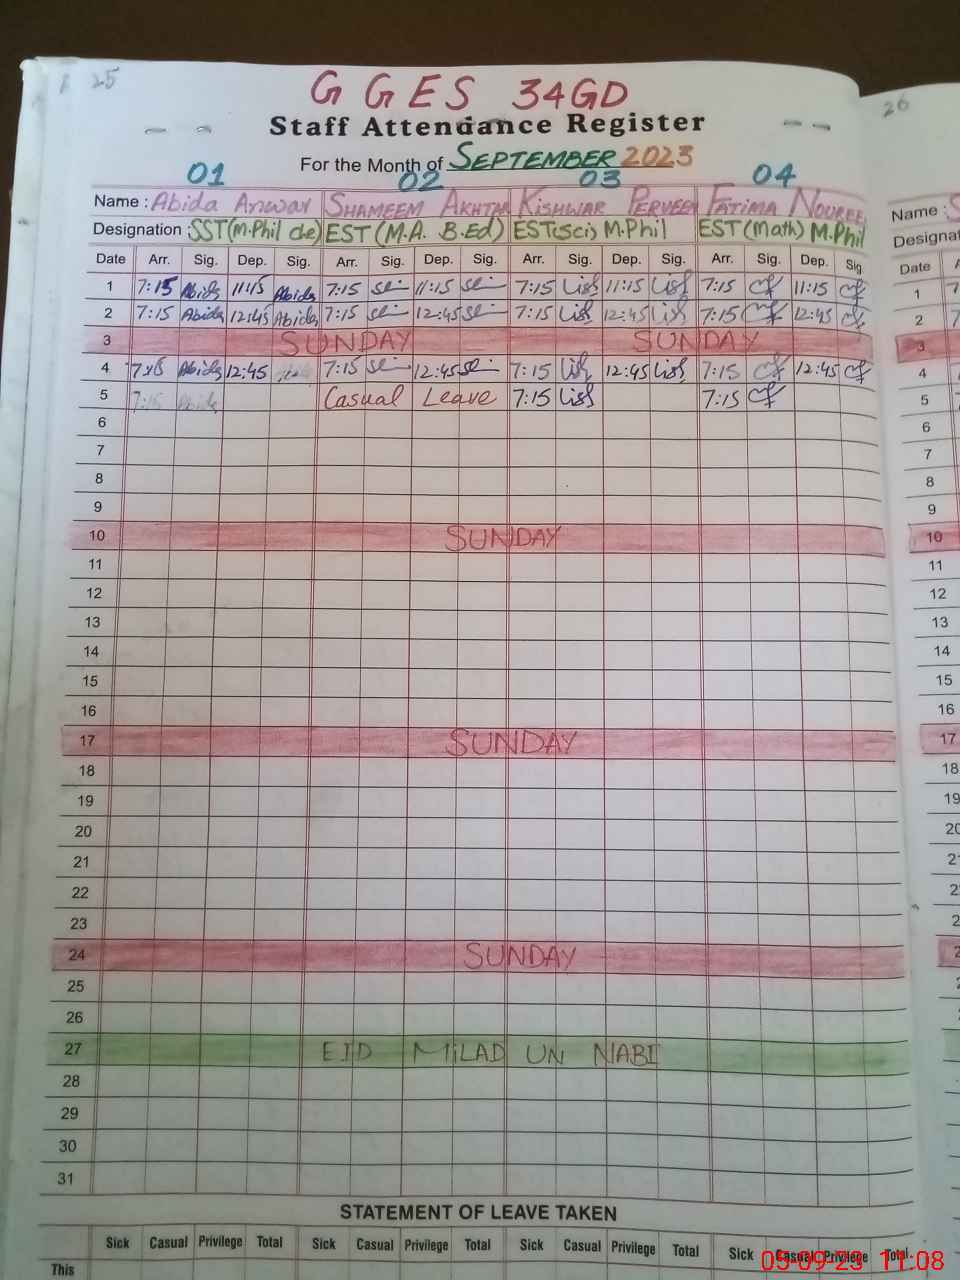 25
G GES 34GD
Staff Attendance Register
26
For the Month of SEPTEMBER 2023
01 02 03 04
Name : Abida Anwar SHAMEEM AKHTAR KISHWAR PERVEEN FATIMA NOUREE
Name :
Designation : SST(M.Phil che) EST (M.A. B.Ed) EST(Sci) M.Phil EST (Math) M.Phil
Designat
Date Arr. Sig. Dep. Sig. Arr. Sig. Dep. Sig. Arr. Sig. Dep. Sig. Arr. Sig. Dep. Sig. Date
1 7:15 Abida 11:15 Abida 7:15 11:15 7:15 11:15 7:15 11:15 1
2 7:15 Abida 12:45 Abida 7:15 12:45 7:15 12:45 7:15 12:45 2
3 SUNDAY SUNDAY 3
4 7:15 Abida 12:45 7:15 12:45 7:15 12:45 7:15 12:45 4
5 7:15 Abida Casual Leave 7:15 7:15 5
6 6
7 7
8 8
9 9
10 SUNDAY 10
11 11
12 12
13 13
14 14
15 15
16 16
17 SUNDAY 17
18 18
19 19
20 20
21
22 22
23
24 SUNDAY
25
26
27 EID MILAD UN NABI
28
29
30
31
STATEMENT OF LEAVE TAKEN
Sick Casual Privilege Total Sick Casual Privilege Total Sick Casual Privilege Total Sick Casual Privilege Total
This
05-09-23 11:08